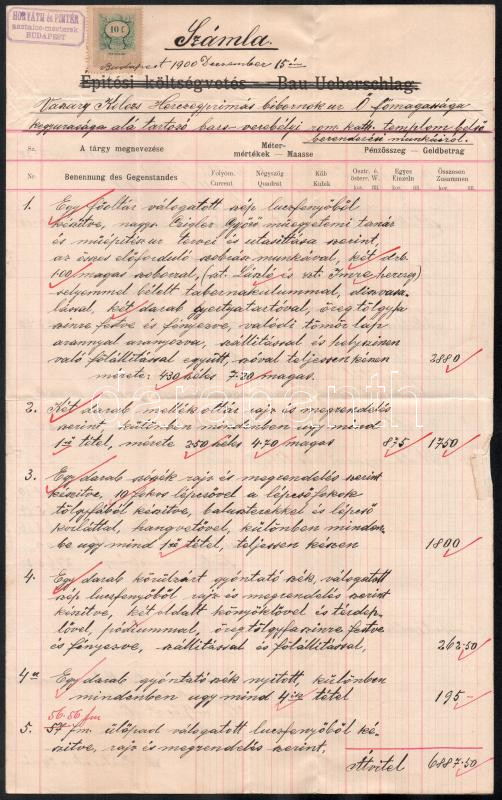 HORVÁTH és PINTÉR
asztalos-mesterek
BUDAPEST
10 f
Számla.
Budapest 1900 Desember 15 én
Építési költségvetés — Bau-Ueberschlag.
Herczegprimás bibornok ur Ő főmagassága
kegyurasága alá tartozó bars-verebélyi rom. kath. templom belső
berendezési munkáiról.
Sz. A tárgy megnevezése Méter-mértékek — Maasse Pénzösszeg — Geldbetrag
Nr. Benennung des Gegenstandes Folyom. Current Négyszög Quadrat Köb Kubik Osztr. é. österr. W. Egyes Einzeln Összesen Zusammen
kor. fill. kor. fill. kor. fill.
1. Egy főoltár válogatott szép luczfenyőből
készitve, nagys. Czigler Győző műegyetemi tanár
és műépitész ur tervei és utasitása szerint,
az összes előforduló szobrász munkával, két drb.
1·00 magas szoborral, (szt. László és szt. Imre herczeg)
selyemmel bélelt tabernakulummal, diszvasa-
lással, két darab gyertyatartóval, öreg tölgyfa
szinre festve és fényezve, valódi tömör lap
arannyal aranyozva, szállitással és helyszinen
való fölállitással együtt, szóval teljesen készen 2880
mérete: 4·30 széles 7·20 magas.
2. Két darab mellék oltár rajz és megrendelés
szerint, különben mindenben ugy mind
1ső tétel, mérete 2·50 széles 4·70 magas 875 1750
3. Egy darab szószék rajz és megrendelés szerint
készitve, 10 fokos lépcsővel a lépcsőfokok
tölgyfából készitve, baluszterekkel és lépcső
korláttal, hangvetővel, különben minden-
be ugy mind 1ső tétel, teljesen készen 1800
4. Egy darab körülzárt gyóntató szék, válogatott
szép luczfenyőből rajz és megrendelés szerint
készitve, két oldalt könyöklővel és térdep-
lővel, pódiummal, öreg tölgyfa szinre festve
és fényezve, szállitással és fölállitással, 262·50
4a Egy darab gyóntató szék nyitott, különben
mindenben ugy mind 4ik tétel 195 –
56·56 fm
5. 57 fm. ülőpad válogatott luczfenyőből ké-
szitve, rajz és megrendelés szerint.
Átvitel 6887·50